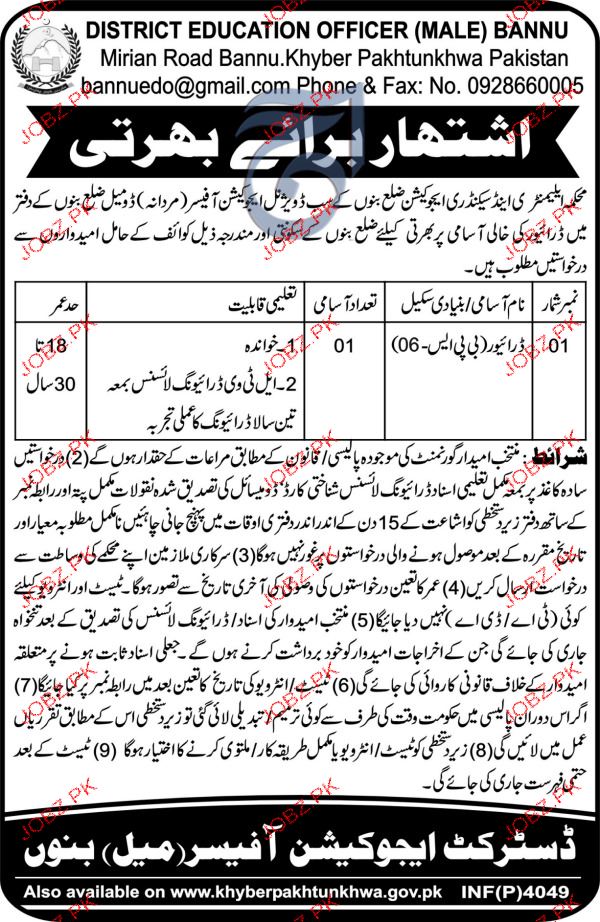 DISTRICT EDUCATION OFFICER (MALE) BANNU
Mirian Road Bannu.Khyber Pakhtunkhwa Pakistan
bannuedo@gmail.com Phone & Fax: No. 0928660005
اشتہار برائے بھرتی
محکمہ ایلیمنٹری اینڈ سیکنڈری ایجوکیشن ضلع بنوں کے سب ڈویژنل ایجوکیشن آفیسر (مردانہ) ڈومیل ضلع بنوں کے دفتر
میں ڈرائیور کی خالی آسامی پر بھرتی کیلئے ضلع بنوں کے سکونتی اور مندرجہ ذیل کوائف کے حامل امیدواروں سے
درخواستیں مطلوب ہیں۔
نمبر شمار نام آسامی/بنیادی سکیل تعداد آسامی تعلیمی قابلیت حد عمر
01 ڈرائیور (بی پی ایس-06) 01 1۔خواندہ 18 تا
2۔ایل ٹی وی ڈرائیونگ لائسنس بمعہ 30 سال
تین سالا ڈرائیونگ کا عملی تجربہ
شرائط: منتخب امیدار گورنمنٹ کی موجودہ پالیسی/قانون کے مطابق مراعات کے حقدار ہوں گے (2) درخواستیں
سادہ کاغذ پر بمعہ مکمل تعلیمی اسناد ڈرائیونگ لائسنس شناختی کارڈ ڈومیسائل کی تصدیق شدہ نقولات مکمل پتہ اور رابطہ نمبر
کے ساتھ دفتر زیر دستخطی کو اشاعت کے 15 دن کے اندر اندر دفتری اوقات میں پہنچ جانی چاہئیں نامکمل مطلوبہ معیار اور
تاریخ مقررہ کے بعد موصول ہونے والی درخواستوں پر غور نہیں ہوگا (3) سرکاری ملازمین اپنے محکمے کی وساطت سے
درخواست ارسال کریں (4) عمر کا تعین درخواستوں کی وصولی کی آخری تاریخ سے تصور ہوگا۔ ٹیسٹ اور انٹرویو کیلئے
کوئی (ٹی اے/ڈی اے) نہیں دیا جائیگا (5) منتخب امیدوار کی اسناد/ڈرائیونگ لائسنس کی تصدیق کے بعد تنخواہ
جاری کی جائے گی جن کے اخراجات امیدوار کو خود برداشت کرنے ہوں گے۔ جعلی اسناد ثابت ہونے پر متعلقہ
امیدوار کے خلاف قانونی کاروائی کی جائے گی (6) ٹیسٹ/انٹرویو کی تاریخ کا تعین بعد میں رابطہ نمبر پر کیا جائیگا (7)
اگر اس دوران پالیسی میں حکومت وقت کی طرف سے کوئی ترمیم/تبدیلی لائی گئی تو زیر دستخطی اس کے مطابق تقرریاں
عمل میں لائیں گی (8) زیر دستخطی کو ٹیسٹ/انٹرویو یا مکمل طریقہ کار/ملتوی کرنے کا اختیار ہوگا (9) ٹیسٹ کے بعد
حتمی فہرست جاری کی جائے گی۔
ڈسٹرکٹ ایجوکیشن آفیسر (میل) بنوں
Also available on www.khyberpakhtunkhwa.gov.pk INF(P)4049
JOBZ.PK